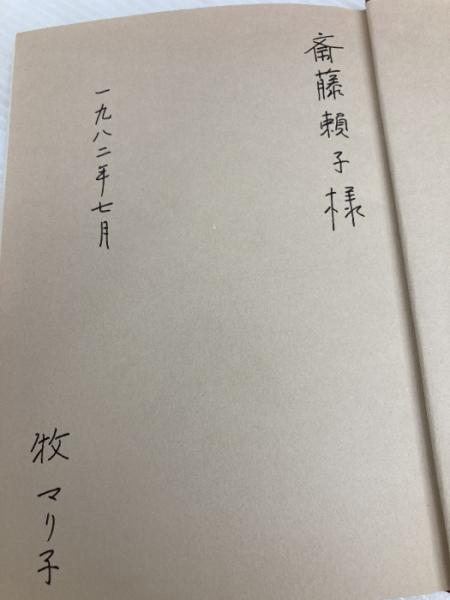 斎藤頼子様
一九八二年七月
牧マリ子